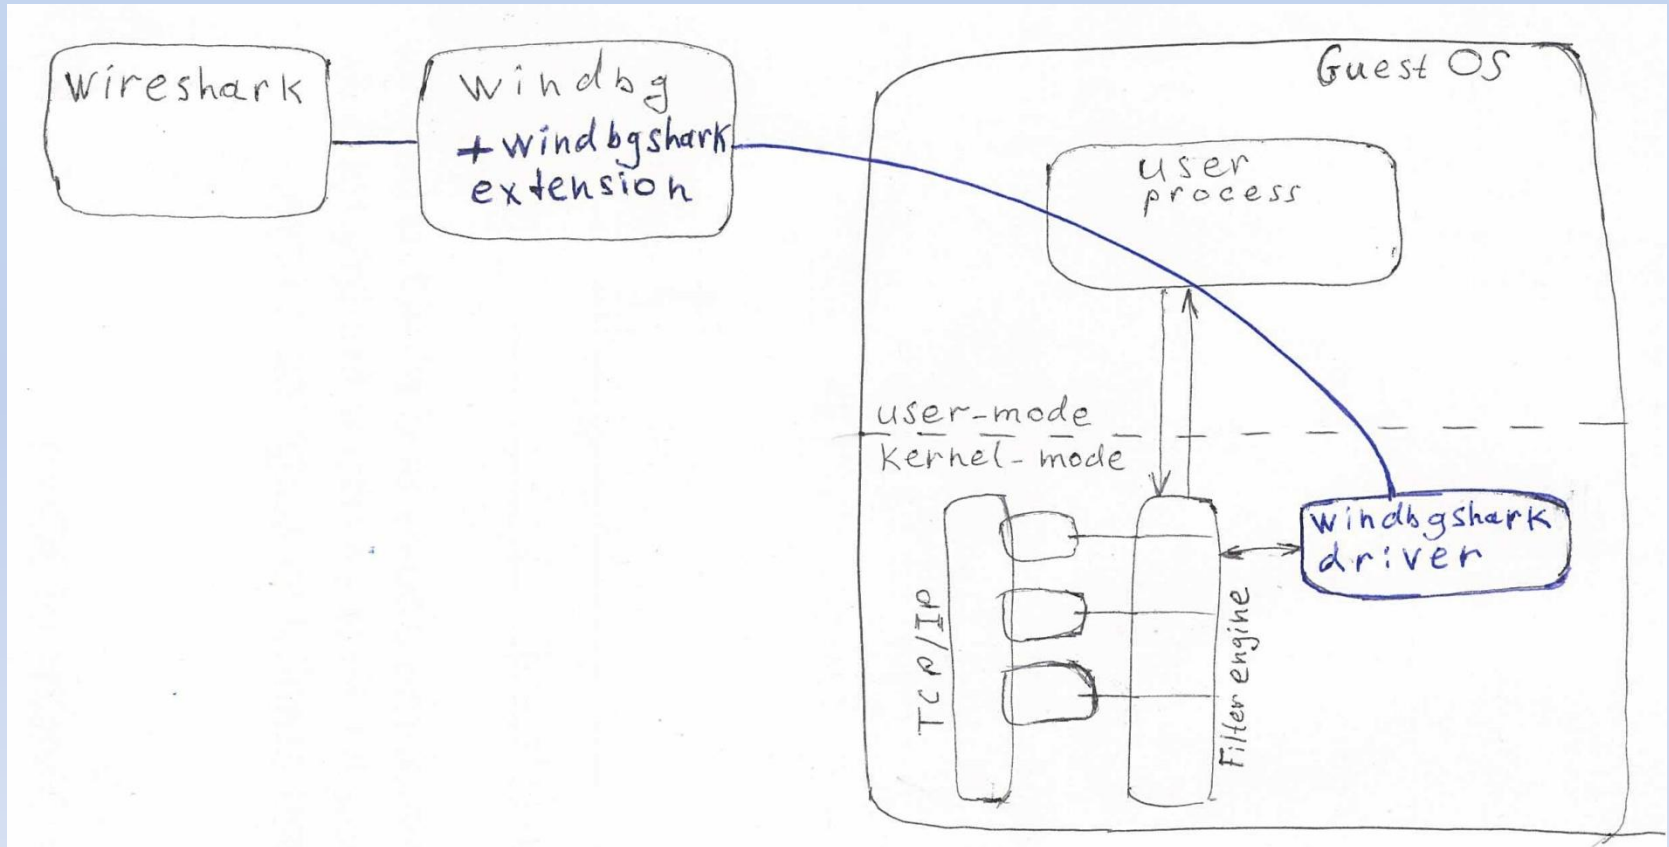 Wireshark
Windbg
+windbgshark
extension
Guest OS
user
process
user-mode
kernel-mode
TCP/IP
Filter engine
windbgshark
driver